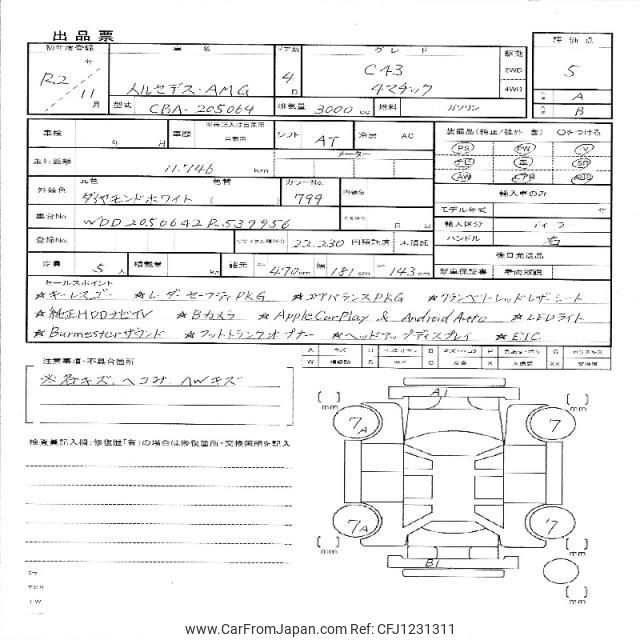 出品票
初年度登録 車名 ドア数 グレード 駆動 評価点
R2 年 11 月 メルセデス・AMG 4 D C43 4マチック 2WD 4WD 5
型式 CBA-205064 排気量 3000 cc 燃料 ガソリン A B
車検 年 月 車歴 シフト AT 冷房 AC 装備品(純正/社外 含) ○をつける
走行距離 11.746 km メーター PS PW
AW
外装色 元色 ダイヤモンドホワイト 色替 ( カラーNo. 799 内装色 輸入車のみ
モデル年式 年
車台No. WDD2050642R539956 月 輸入区分 ディーラ
登録No. 22.230 円預託済 未預託 ハンドル 右
後日発送品
定員 5 人 積載量 kg 諸元 470 cm 幅 181 cm 143 cm 新車保証書 車両取説
セールスポイント
☆キーレスゴー ☆レーダーセーフティPKG ☆エアバランスPKG ☆クランベリーレッドレザーシート
☆純正HDDナビTV ☆Bカメラ ☆AppleCarPlay & Android Auto ☆LEDライト
☆Burmesterサウンド ☆フットトランクオープナー ☆ヘッドアップディスプレイ ☆E.T.C.
注意事項・不具合箇所
※各キズ、ヘコみ、AWキズ
検査員記入欄:修復歴「有」の場合は修復箇所・交換箇所を記入
A1
7A 7
7A 7
B1
mm mm
mm mm
mm
www.CarFromJapan.com #CFJ1231311